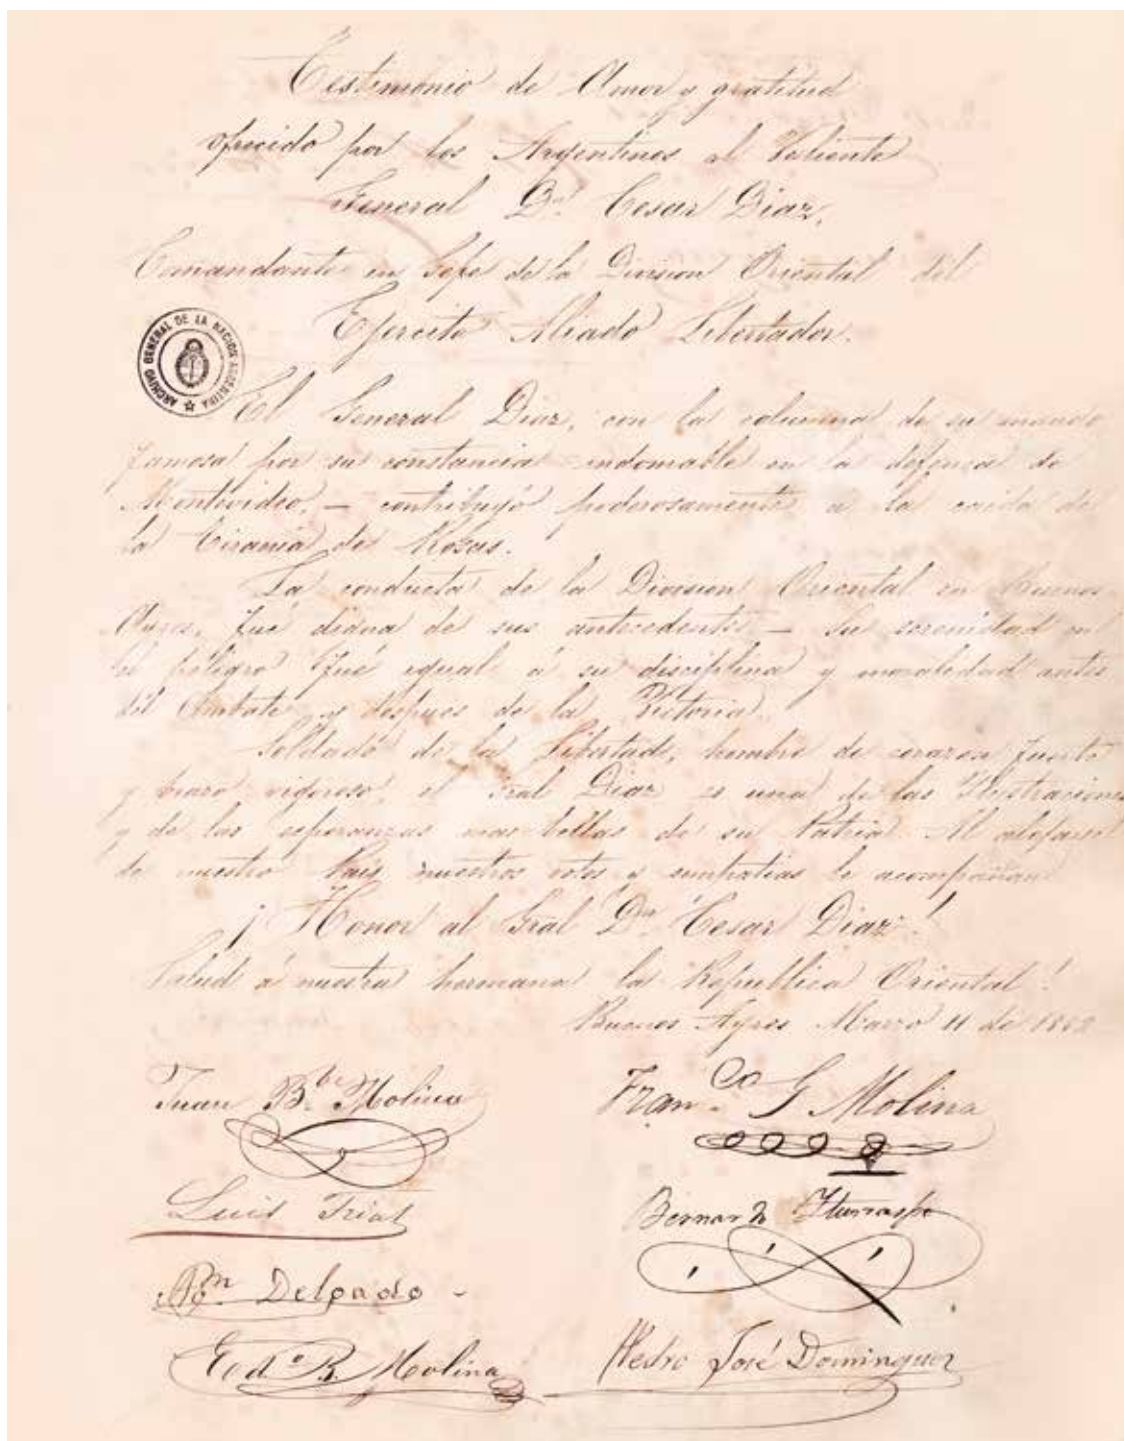 Testimonio de Amor y gratitud
ofrecido por los Argentinos al Valiente
General Dn. Cesar Diaz,
Comandante en Gefe de la Division Oriental del
Ejercito Aliado Libertador.
ARCHIVO GENERAL DE LA NACION ARGENTINA
El General Diaz, con la columna de su mando
famosa por su constancia indomable en la defensa de
Montevideo, — contribuyó poderosamente a la caida de
la Tirania de Rosas.
La conducta de la Division Oriental en Buenos
Ayres, fué digna de sus antecedentes — Su serenidad en
el peligro fué igual á su disciplina y moralidad antes
del Combate y despues de la Victoria.
Soldado de la Libertad, hombre de corazon fuerte
y brazo vigoroso, el Gral Diaz es una de las Ilustraciones
y de las esperanzas mas bellas de su Patria. Al alejarse
de nuestro Pais, nuestros votos y simpatias le acompañan
¡Honor al Gral Dn Cesar Diaz!
Salud á nuestra hermana la Republica Oriental!
Buenos Ayres Marzo 11 de 1852
Juan Bte. Molina
Franco. G Molina
Luis Frias
Bernardo Iturraspe
Delgado
Edo. B. Molina
Pedro José Dominguez